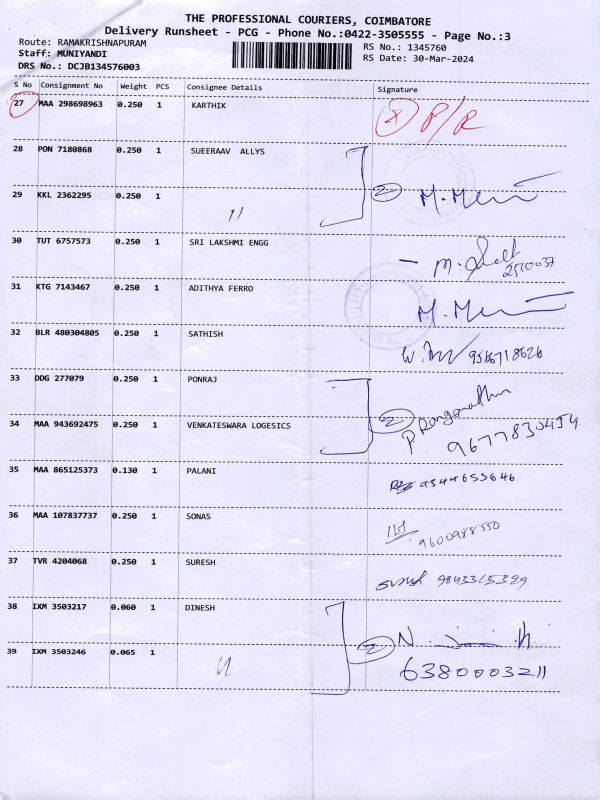 THE PROFESSIONAL COURIERS, COIMBATORE
Delivery Runsheet - PCG - Phone No.:0422-3505555 - Page No.:3
Route: RAMAKRISHNAPURAM RS No.: 1345760
Staff: MUNIYANDI RS Date: 30-Mar-2024
DRS No.: DCJB134576003
S No Consignment No Weight PCS Consignee Details Signature
27 MAA 298698963 0.250 1 KARTHIK P/R
28 PON 7180868 0.250 1 SUEERAAV ALLYS
29 KKL 2362295 0.250 1 11 2
30 TUT 6757573 0.250 1 SRI LAKSHMI ENGG
2570037
31 KTG 7143467 0.250 1 ADITHYA FERRO
32 BLR 480304805 0.250 1 SATHISH 9566718626
33 DDG 277079 0.250 1 PONRAJ
34 MAA 943692475 0.250 1 VENKATESWARA LOGESICS 2
35 MAA 865125373 0.130 1 PALANI 9344655646
36 MAA 107837737 0.250 1 SONAS
9600988550
37 TVR 4204068 0.250 1 SURESH
38 IXM 3503217 0.060 1 DINESH
39 IXM 3503246 0.065 1 11 2
6380003211